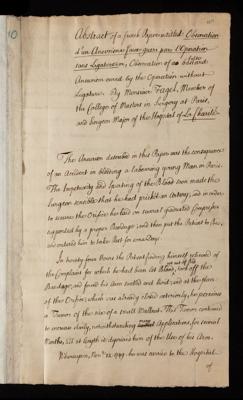 10
Abstract of a french Paper entitled Observation
d'un Aneurisme faux guéri par l'Operation
sans Ligature; Observation of a false
Aneurism cured by the Operation without
Ligature. By Monsieur Faget, Member of
the College of Masters in Surgery at Paris,
and Surgeon Major of the Hospital of La Charité.
The Aneurism described in this Paper was the consequence
of an Accident in bleeding a labouring young Man in Paris.
The Impetuosity and Spouting of the Blood soon made the
Surgeon sensible that he had prick'd an Artery; and in order
to secure the Orifice he laid on several graduated Compresses
supported by a proper Bandage: and then put the Patient to Bed,
and ordered him to take Rest for some Days.
In twenty four Hours the Patient finding himself relieved of
the Complaint for which he had been let Blood, took off the
Bandage, and found his Arm swelled and livid; and at the place
of the Orifice, which was already closed externally, he perceived
a Tumor of the size of a small Walnut. This Tumor continued
to increase daily, notwithstanding Applications, for several
Months, till at length it deprived him of the Use of his Arm.
Whereupon, Nov. 12. 1749. he was carried to the Hospital
of